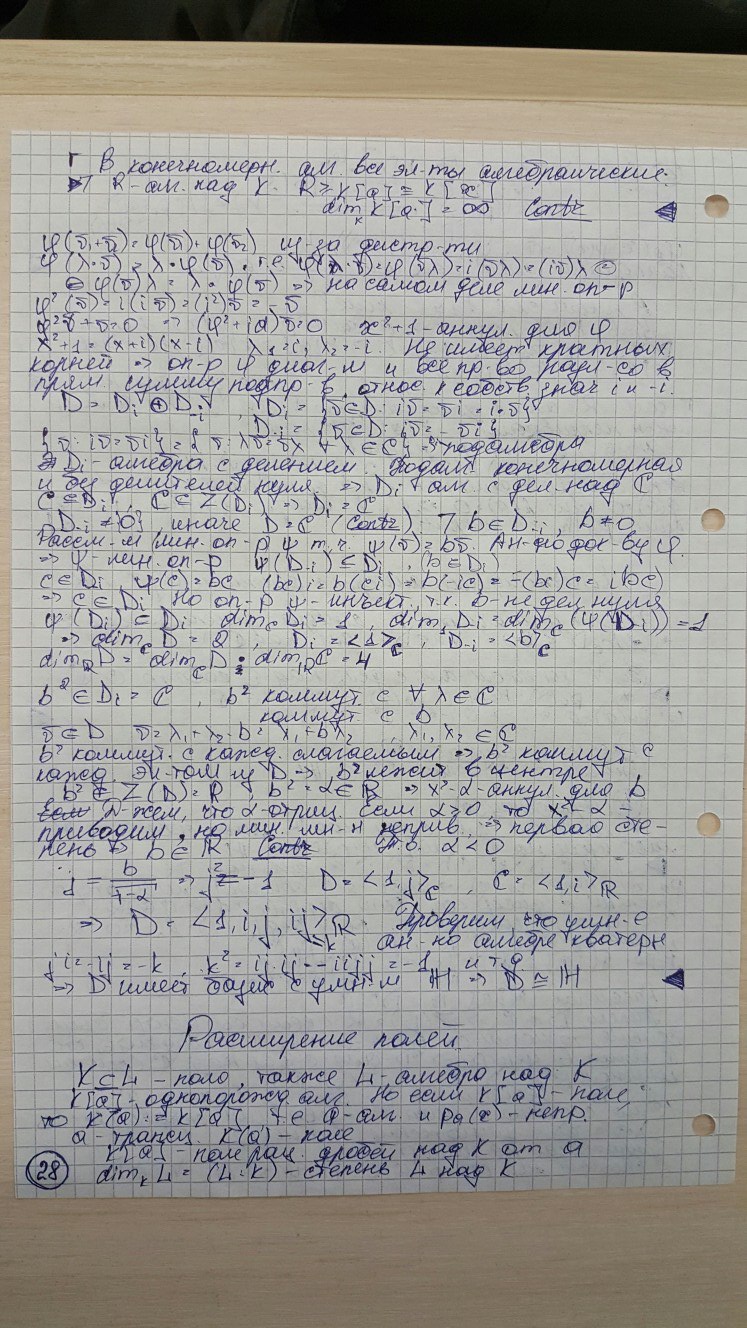 Г В конечномерн. алг. все эл-ты алгебраические.
R-алг. над K. R ⊇ K[a] ≅ K[x]
dim_K K[a] = ∞ Contr ◀
φ(v₁+v₂) = φ(v₁)+φ(v₂) из-за дистр-ти
φ(λ·v) = λ·φ(v), т.е. φ(λ·v)=φ(vλ)=i(vλ)=(iv)λ =
= φ(v)λ = λ·φ(v) ⇒ на самом деле лин. оп-р
φ²(v) = i(iv) = (i²)v = -v
φ²v+v=0 ⇒ (φ²+id)v=0 x²+1-аннул. для φ
x²+1 = (x+i)(x-i) λ₁=i, λ₂=-i. Не имеет кратных
корней ⇒ оп-р φ диаг-м и всё пр-во разл-ся в
прям. сумму подпр-в, относ. к собств. знач i и -i.
D = D_i ⊕ D_{-i}, D_i = {v∈D: iv = vi = i·v}
D_{-i} = {v∈D: iv = -vi}
{v: iv=vi} = {v: λv=vλ ∀ λ∈C} ⇒ подалгебра
D_i - алгебра с делением. Подалг. конечномерная
и без делителей нуля ⇒ D_i алг. с дел. над C
C ⊆ D_i C ⊆ Z(D_i) ⇒ D_i = C
D_{-i} ≠ {0}, иначе D = C (Contr) ] b∈D_{-i}, b≠0
Рассм-м лин. оп-р ψ т.ч. ψ(v)=bv. Ан-но док-ву φ.
⇒ ψ - лин. оп-р ψ(D_{-i}) ⊆ D_i, (b∈D_{-i})
c∈D_i ψ(c)=bc (bc)i = b(ci) = b(-ic) = -(bc)c = i(bc)
⇒ c∈D_i Но оп-р ψ-инъект, т.к. b-не дел. нуля
ψ(D_{-i}) ⊆ D_i dim_C D_i = 1, dim D_{-i} = dim_C(ψ(D_{-i})) = 1
⇒ dim_C D = 2, D_i = <1>_C, D_{-i} = <b>_C
dim_ℝ D = dim_C D · dim_ℝ C = 4
b² ∈ D_i = C, b² коммут. с ∀ λ∈C
коммут. с b
v∈D v = λ₁+λ₂·b = λ₁+bλ₂, λ₁, λ₂ ∈ C
b² коммут. с кажд. слагаемым ⇒ b² коммут с
кажд. эл-том из D ⇒ b² лежит в центре
b² ∈ Z(D) = ℝ, b² = α∈ℝ ⇒ x²-α-аннул. для b
Д-жем, что α-отриц. Если α≥0, то x²-α -
приводим, но мин. мн-н неприв. ⇒ первая сте-
пень ⇒ b∈ℝ Contr Т.о. α<0
j = b/√-α ⇒ j² = -1 D = <1,j>_C, C = <1,i>_ℝ
⇒ D = <1,i,j,ij>_ℝ Проверим, что умн-е
k ан-но алгебре кватерн
ji=-ij=-k, k² = ij·ij = -iijj = -1 и т.д
⇒ D имеет общее с умн-м ℍ ⇒ D ≅ ℍ ◀
Расширение полей
K ⊂ L - поле, также L-алгебра над K
K[a] - однопорожд алг. Но если K[a] - поле,
то K(a) := K[a] т.е. a-алг. и p_a(x)-непр.
a-трансц. K(a) - поле
K[a] - поле рац. дробей над K от a
dim_K L = (L:K) - степень L над K
28